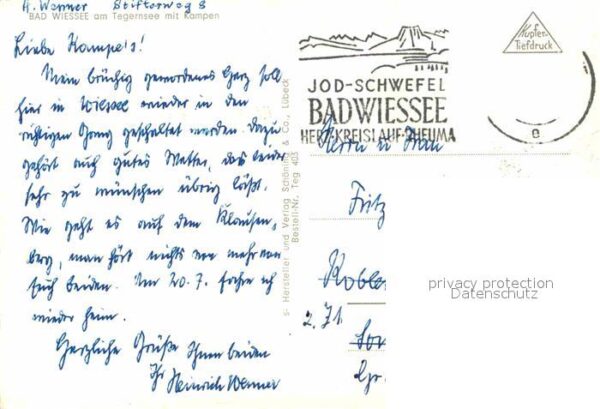 H. Werner Stifterweg 8
BAD WIESSEE am Tegernsee mit Kampen
Liebe Kampe's!
Mein brüchig gewordenes Herz soll
hier in Wiessee wieder in den
richtigen Gang geschaltet werden. Dazu
gehört auch gutes Wetter, das leider
sehr zu wünschen übrig läßt.
Wie geht es auf dem Klausen-
berg, man hört nichts von
Euch beiden. Am 20.7. fahre ich
wieder heim.
Herzliche Grüße Ihnen beiden
Ihr Heinrich Werner
s- Hersteller und Verlag Schöning & Co., Lübeck
Bestell-Nr. Teg 403
JOD-SCHWEFEL
BAD WIESSEE
HERZ·KREISLAUF·RHEUMA
e
Kupfer-
Tiefdruck
Herrn u. Frau
Fritz
Koblen
2.71
Gr.
privacy protection
Datenschutz